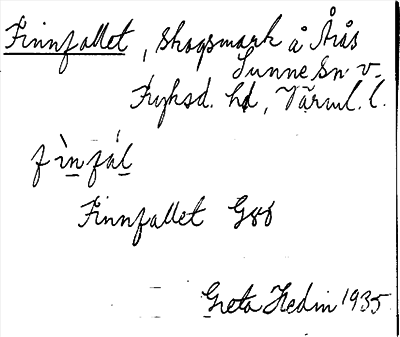 Finnfallet, skogsmark å Årås
Sunne sn. v.
Fryksd. hd, Värml. l.
fìnfál
Finnfallet Gsb
Greta Hedin 1935